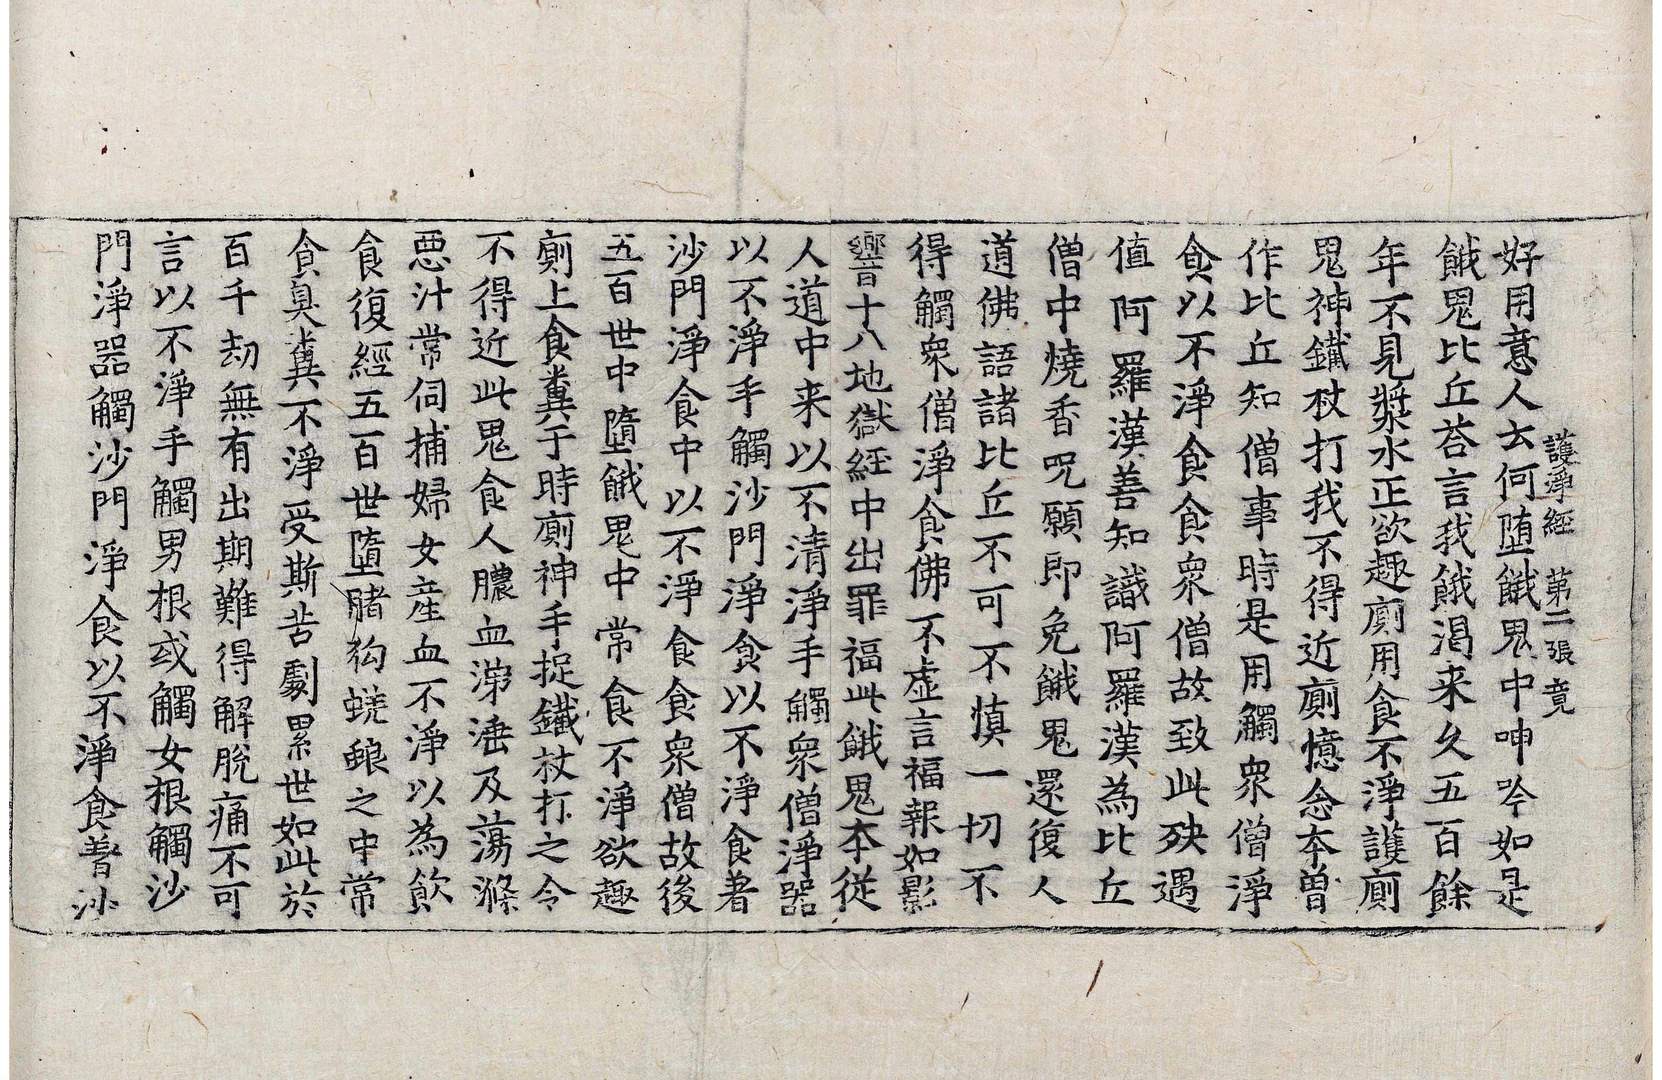 護淨經 第二張 竟
好用意人云何堕餓鬼中呻吟如是
餓鬼比丘荅言我餓渴来久五百餘
年不見漿水正欲趣廁用食不淨護廁
鬼神鐵杖打我不得近廁憶念本曽
作比丘知僧事時是用觸衆僧淨
食以不淨食食衆僧故致此殃遇
值阿羅漢善知識阿羅漢為比丘
僧中燒香呪願即免餓鬼還復人
道佛語諸比丘不可不慎一切不
得觸衆僧淨食佛不虛言福報如影
響十八地獄經中出罪福此餓鬼本従
人道中来以不清淨手觸衆僧淨器
以不淨手觸沙門淨食以不淨食著
沙門淨食中以不淨食食衆僧故後
五百世中墮餓鬼中常食不淨欲趣
廁上食糞于時廁神手捉鐵杖打之令
不得近此鬼食人膿血涕涶及蕩滌
惡汁常伺捕婦女産血不淨以為飲
食復經五百世墮賭狗蜣蜋之中常
食臭糞不淨受斯苦劇累世如此於
百千劫無有出期難得解脫痛不可
言以不淨手觸男根或觸女根觸沙
門淨器觸沙門淨食以不淨食著沙